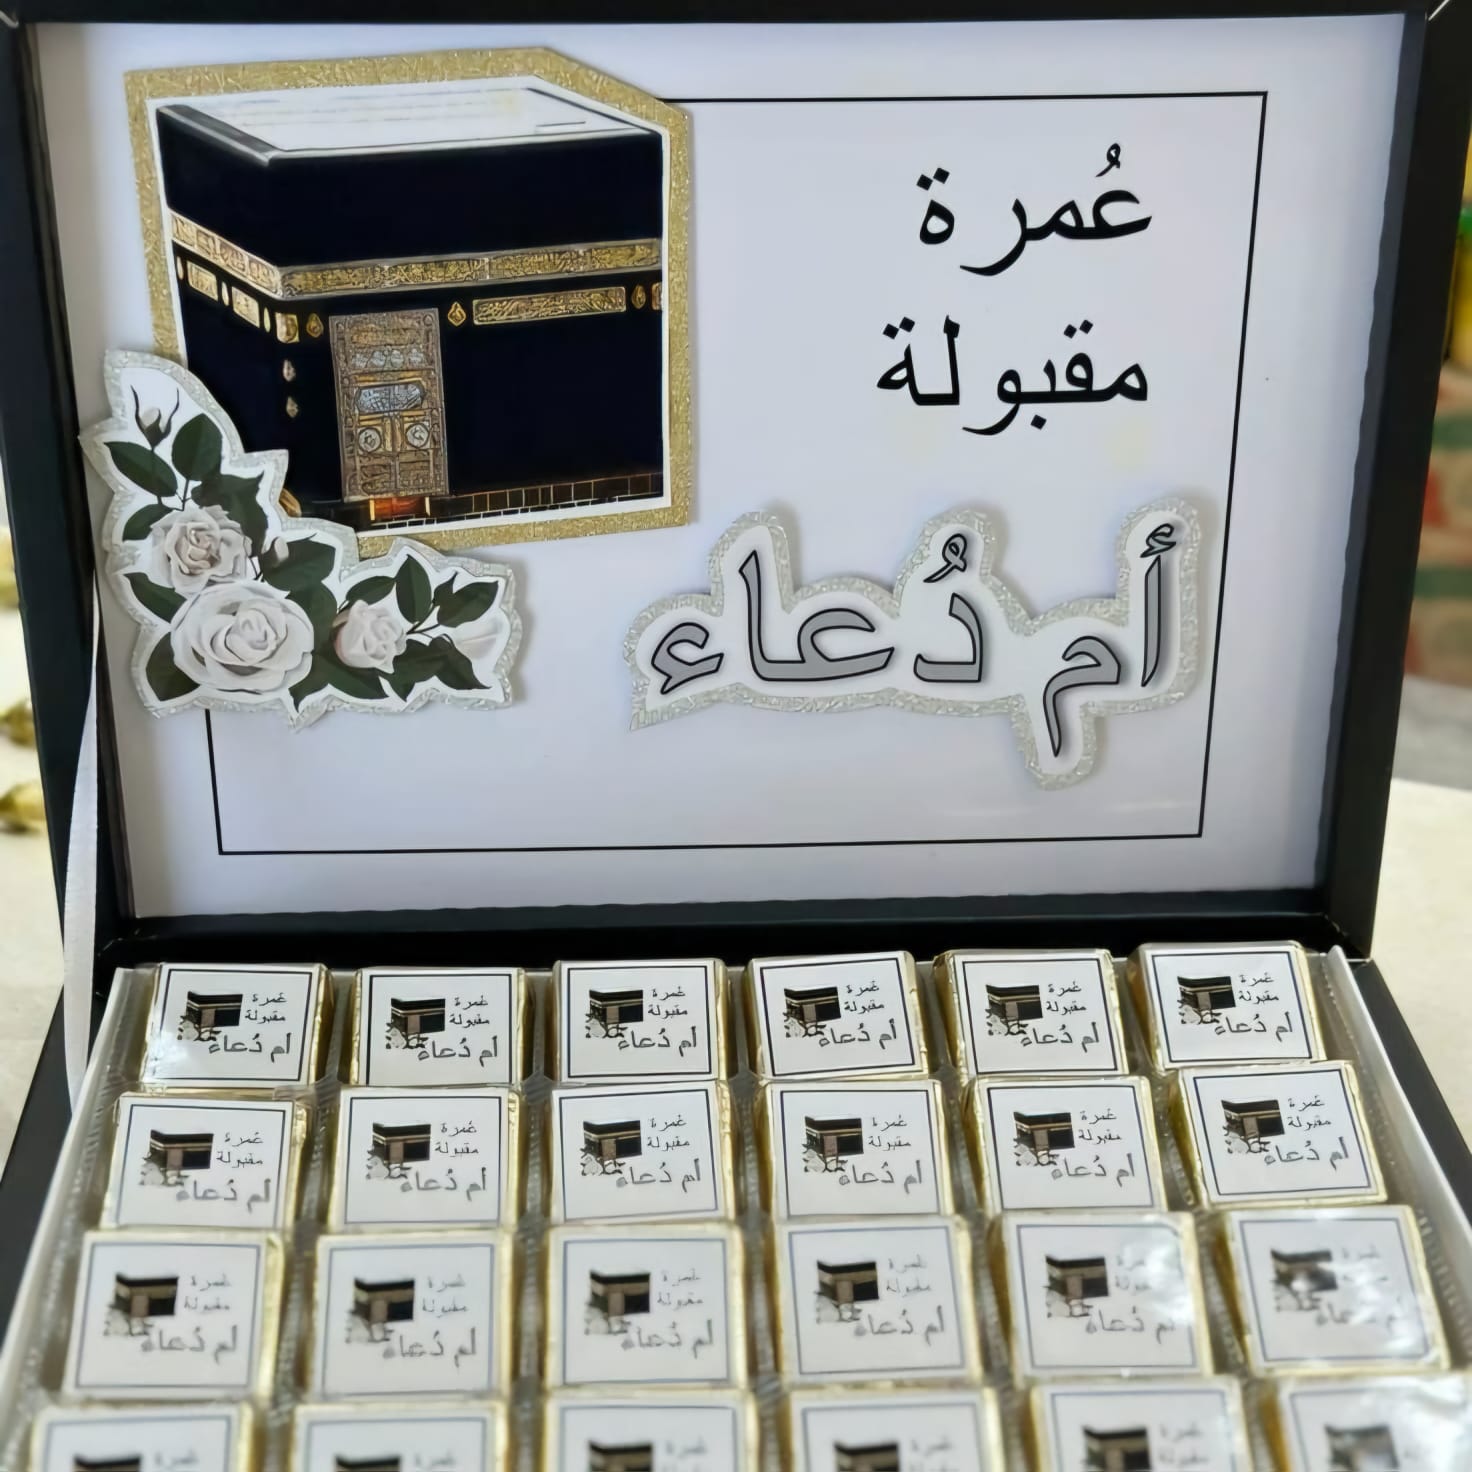 عُمرة
مقبولة
أم دُعاء
عُمرة
مقبولة
أم دُعاء
عُمرة
مقبولة
أم دُعاء
عُمرة
مقبولة
أم دُعاء
عُمرة
مقبولة
أم دُعاء
عُمرة
مقبولة
أم دُعاء
عُمرة
مقبولة
أم دُعاء
عُمرة
مقبولة
أم دُعاء
عُمرة
مقبولة
أم دُعاء
عُمرة
مقبولة
أم دُعاء
عُمرة
مقبولة
أم دُعاء
عُمرة
مقبولة
أم دُعاء
عُمرة
مقبولة
أم دُعاء
عُمرة
مقبولة
أم دُعاء
عُمرة
مقبولة
أم دُعاء
عُمرة
مقبولة
أم دُعاء
عُمرة
مقبولة
أم دُعاء